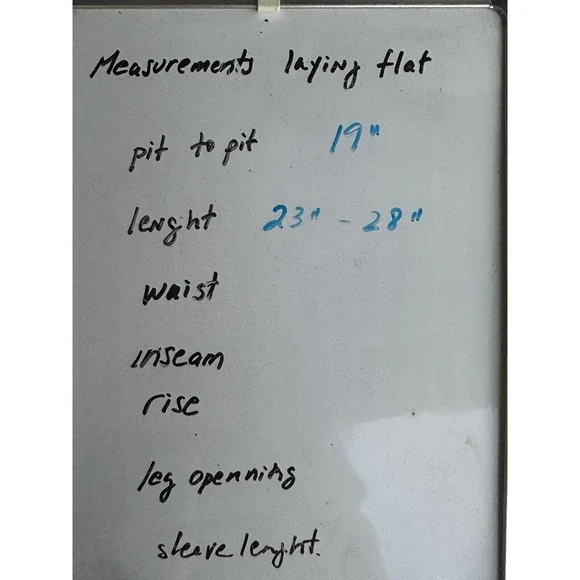 Measurements laying flat
pit to pit 19"
lenght 23" - 28"
waist
inseam
rise
leg openning
sleeve lenght.